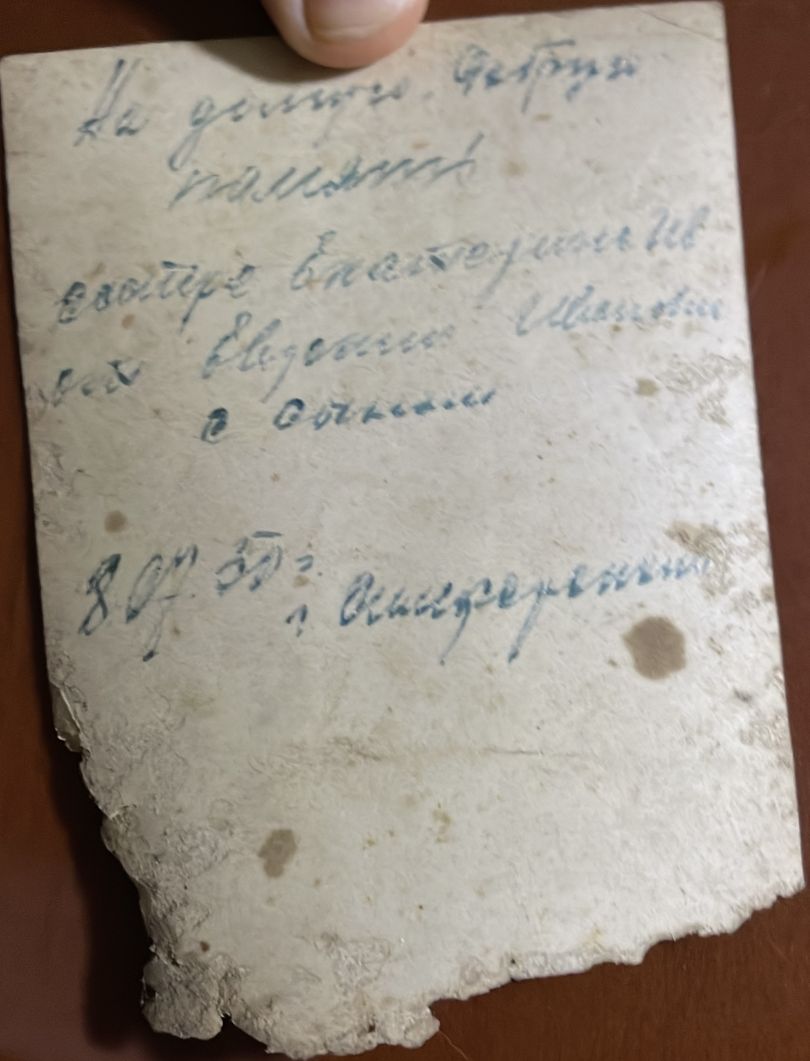 На долгую, добрую
память!
сестре Екатерине Ив
от Евдокии Ивановны
с сыном
8 07. 50 г.
г. Симферополь